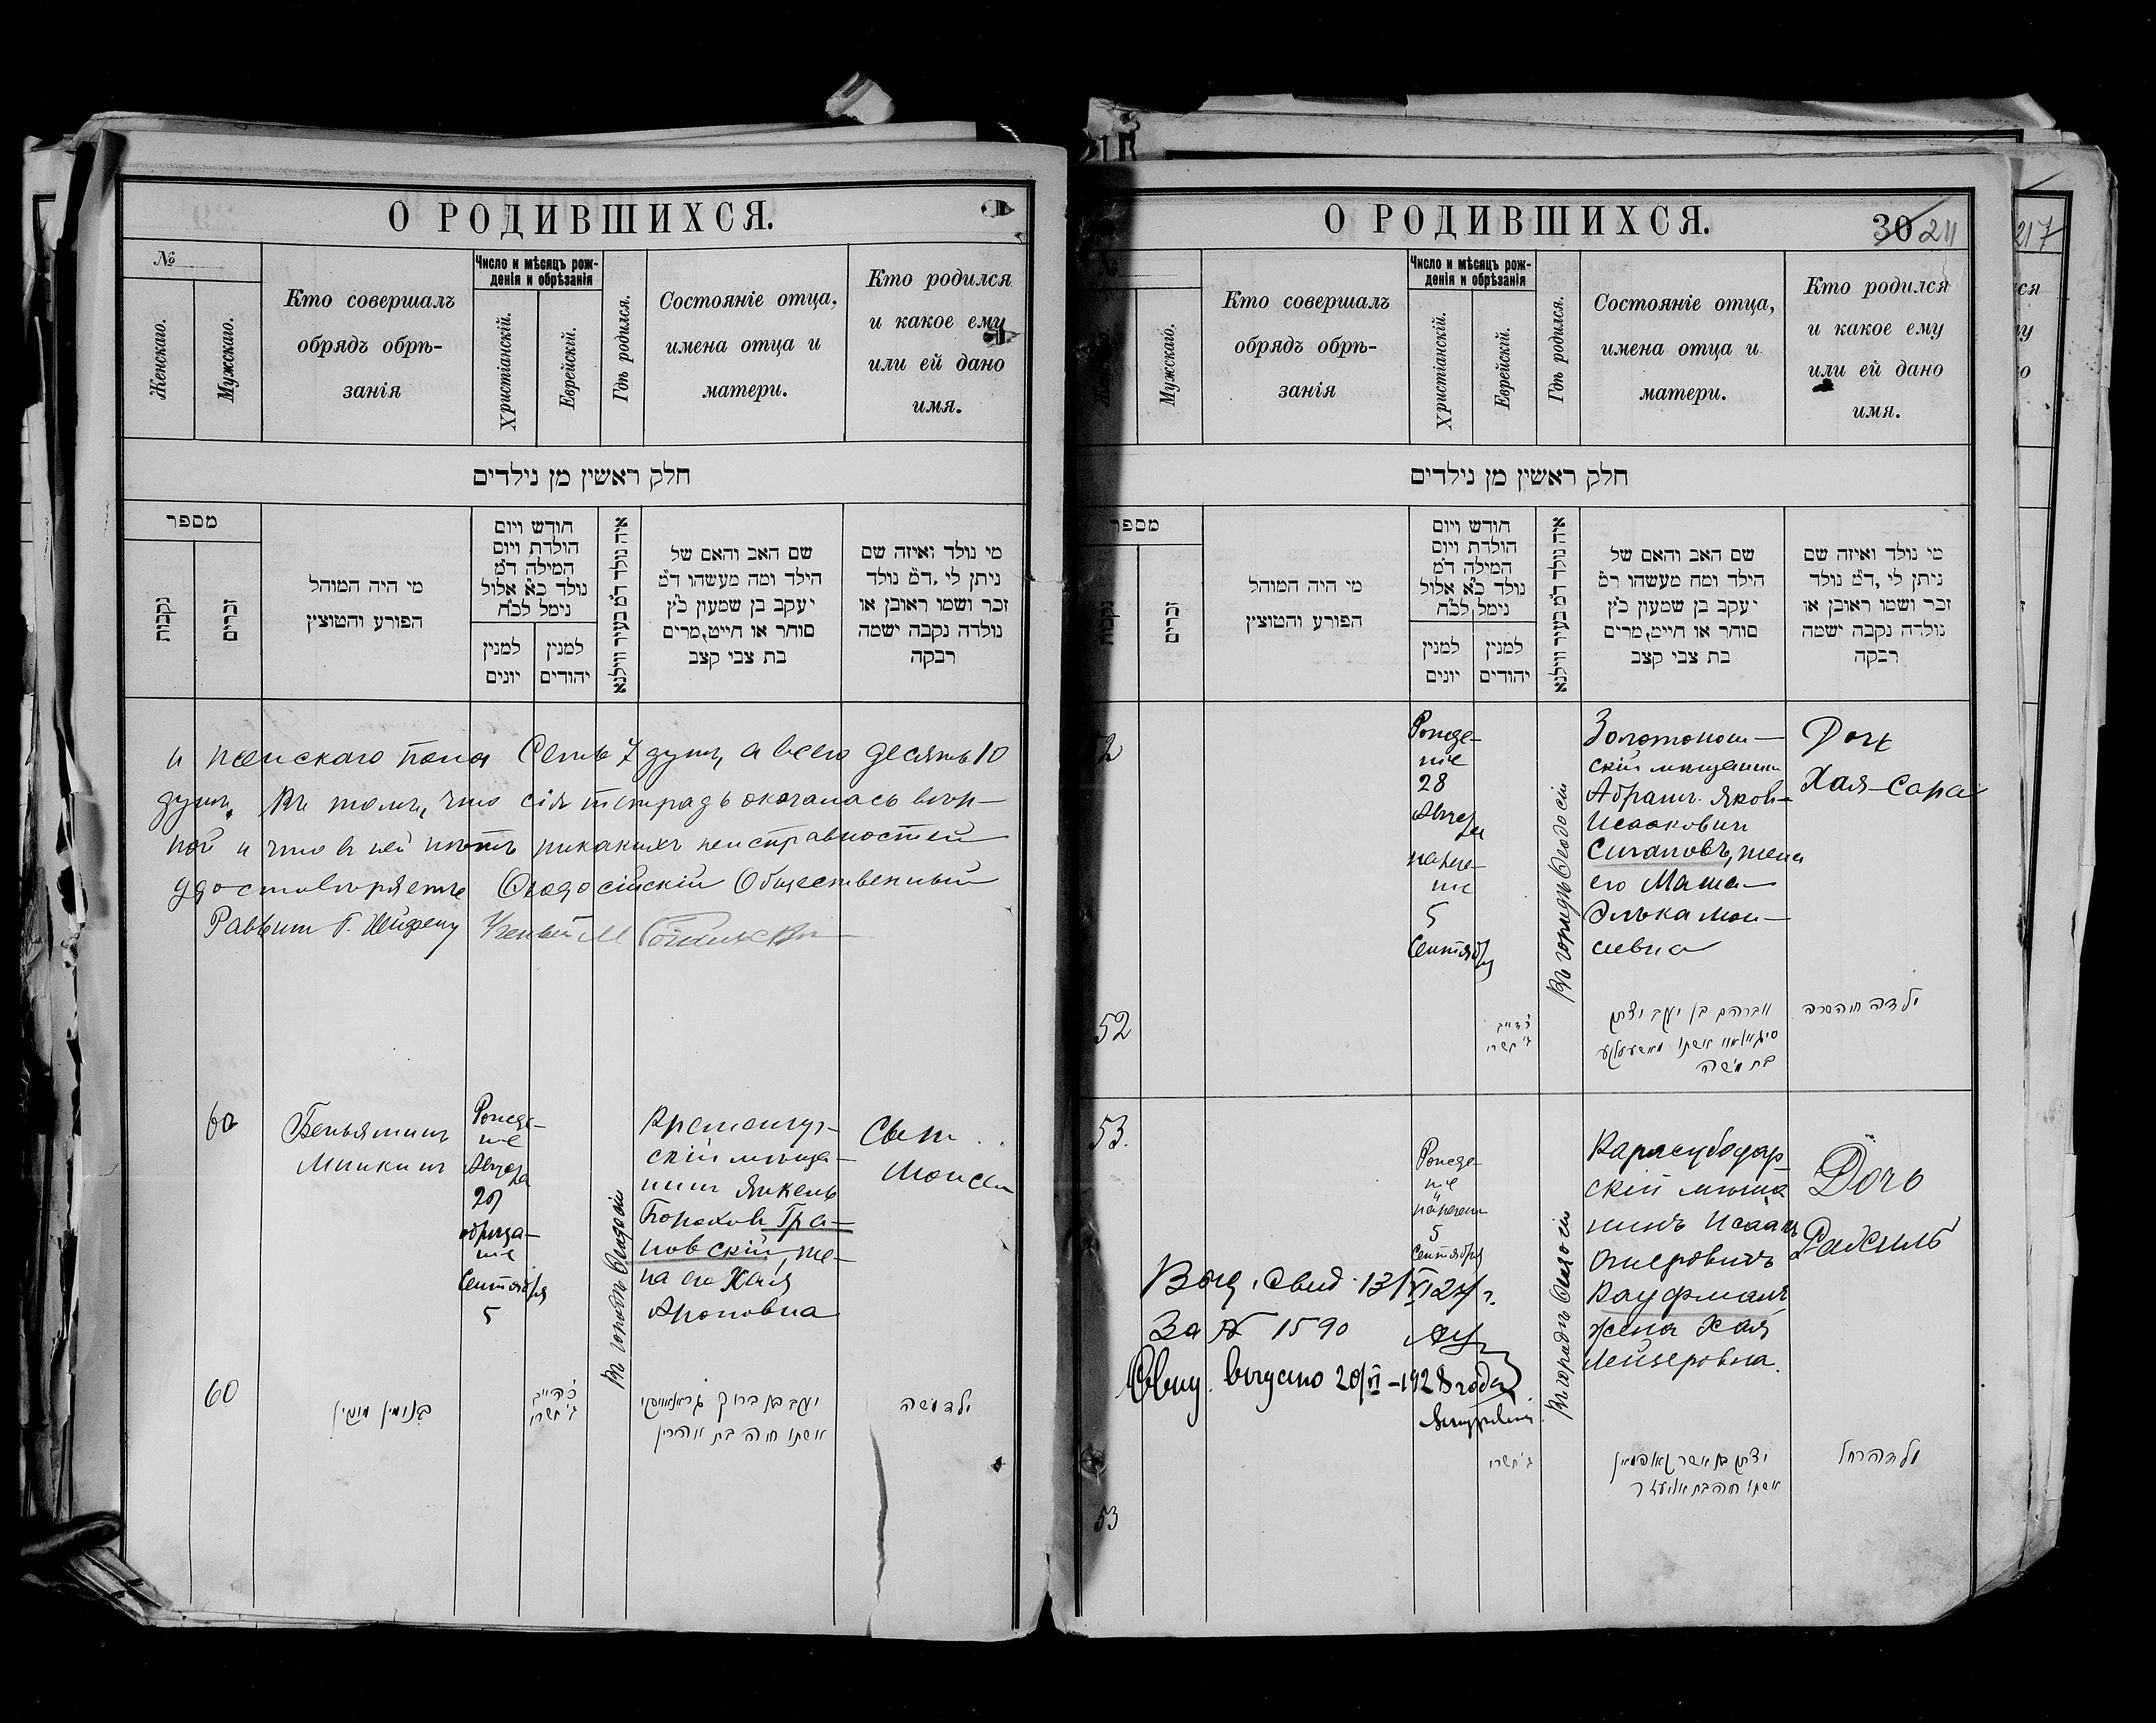 О РОДИВШИХСЯ.
№
Женскаго.
Мужскаго.
Кто совершалъ
обрядъ обрѣ-
занія
Число и мѣсяцъ рож-
денія и обрѣзанія
Христіанскій.
Еврейскій.
Гдѣ родился.
Состояніе отца,
имена отца и
матери.
Кто родился
и какое ему
или ей дано
имя.
חלק ראשון מן נילדים
מספר
נקבות
זכרים
מי היה המוהל
הפורע והטוצץ
חודש ויום
הולדת ויום
המילה דמ
נולד כא אלול
נימל לכח
למנין
יונים
למנין
יהודים
איה נולד דמ בעיר ווילנא
שם האב והאם של
הילד ומה מעשהו דמ
יעקב בן שמעון כץ
סוחר או חייט, מרים
בת צבי קצב
מי נולד ואיזה שם
ניתן לי, דמ נולד
זכר ושמו ראובן או
נולדה נקבה ישמה
רבקה
и женскаго пола Семь 7 душъ, а всего десять 10
душъ. Въ томъ, что сія тетрадь оказалась вѣр-
ной и что въ ней нѣтъ никакихъ неисправностей
удостовѣряетъ Ѳеодосійскій Общественный
Раввинъ Ученый М
60
Беньяминъ
Минкинъ
Рожде-
ніе
Августа
29
обрѣза-
ніе
Сентября
5
Въ городѣ Ѳеодосіи
Кременчуг-
скій мѣща-
нинъ Янкель
Бороховъ Гра-
новскій, же-
на его Хая
Ароновна
Сынъ
Моисей
60
בנימין מינקין
ג' תשרי
יעקב בן ברוך גראנאווסקי
אשתו חיה בת אהרן
ילד משה
О РОДИВШИХСЯ.
30 211
217
Мужскаго.
Кто совершалъ
обрядъ обрѣ-
занія
Число и мѣсяцъ рож-
денія и обрѣзанія
Христіанскій.
Еврейскій.
Гдѣ родился.
Состояніе отца,
имена отца и
матери.
Кто родился
и какое ему
или ей дано
имя.
חלק ראשון מן נילדים
מספר
נקבות
זכרים
מי היה המוהל
הפורע והטוצץ
חודש ויום
הולדת ויום
המילה דמ
נולד כא אלול
נימל לכח
למנין
יונים
למנין
יהודים
איה נולד דמ בעיר ווילנא
שם האב והאם של
הילד ומה מעשהו דמ
יעקב בן שמעון כץ
סוחר או חייט, מרים
בת צבי קצב
מי נולד ואיזה שם
ניתן לי, דמ נולד
זכר ושמו ראובן או
נולדה נקבה ישמה
רבקה
52
Рожде-
ніе
28
Августа
нарече-
ніе
5
Сентября
Въ городѣ Ѳеодосіи
Золотонош-
скій мѣщанинъ
Абрамъ Яков-
Исаакович
Сигаловъ, жена
его Маша-
Элька Мои-
сеевна
Дочь
Хая-Сара
52
ג' תשרי
אברהם בן יעקב יצחק
בת משה
ילדה חיה שרה
53.
Рожде-
ніе
и
наречен
5
Сентября
Въ городѣ Ѳеодосіи
Карасубазар
скій мѣща
нинъ Исаакъ
Ошеровичъ
Кауфманъ
жена Хая
Лейзеровна.
Дочь
Рахиль
Выд. Свид. 13/VI 24 г.
За № 1590
выдано 20/VI - 1928 года
ג' תשרי
יצחק בן אשר קאופמאן
אשתו חיה בת אליעזר
ילדה רחל
53